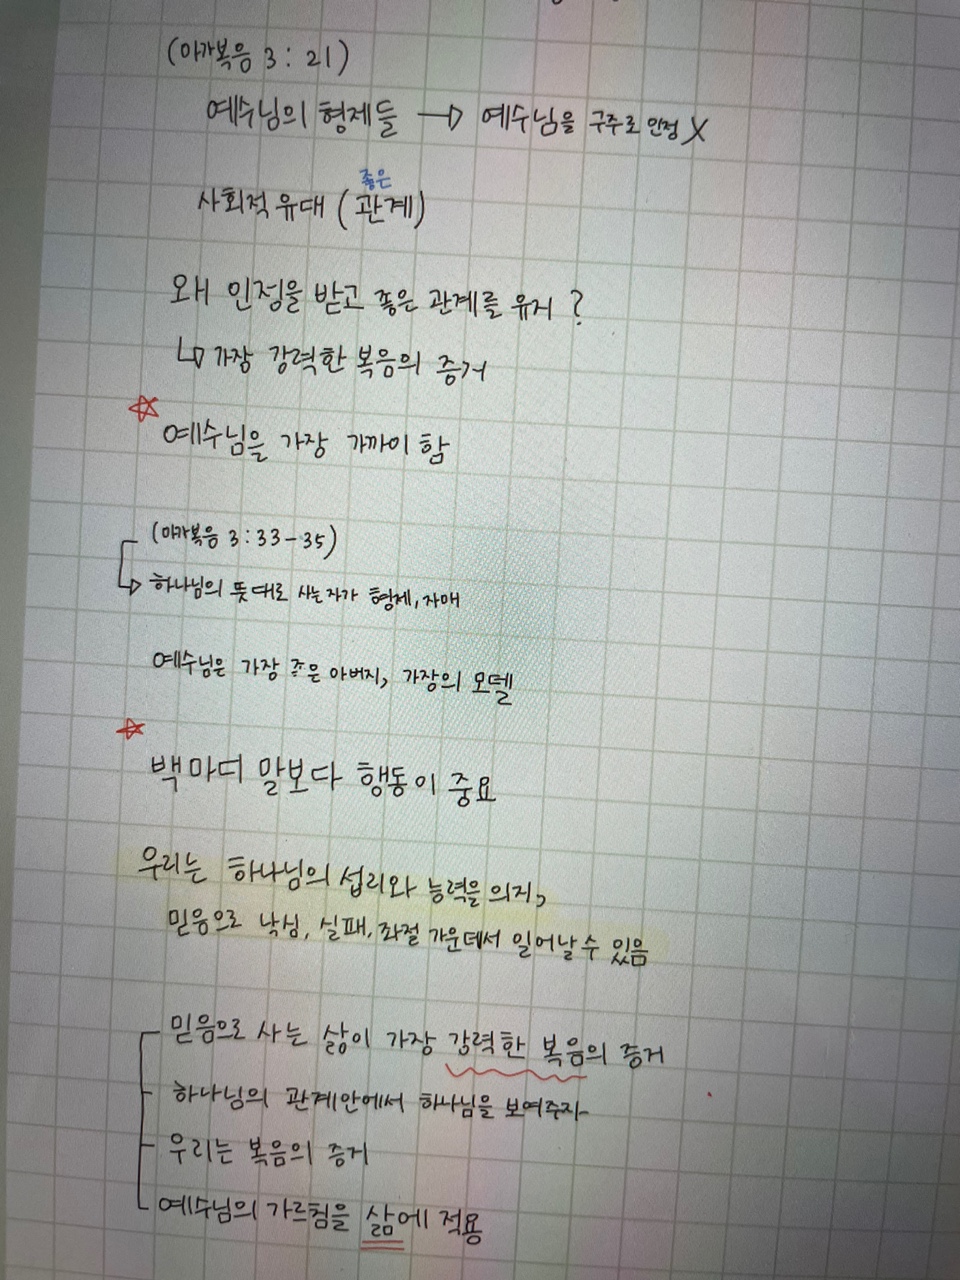 (마가복음 3 : 21)
예수님의 형제들 → 예수님을 구주로 인정 X
좋은
사회적 유대 (관계)
왜 인정을 받고 좋은 관계를 유지 ?
↳ 가장 강력한 복음의 증거
☆
예수님을 가장 가까이 함
(마가복음 3 : 33 - 35)
→ 하나님의 뜻대로 사는 자가 형제, 자매
예수님은 가장 좋은 아버지, 가장의 모델
☆
백마디 말보다 행동이 중요
우리는 하나님의 섭리와 능력을 의지,
믿음으로 낙심, 실패, 좌절 가운데서 일어날 수 있음
믿음으로 사는 삶이 가장 강력한 복음의 증거
하나님의 관계안에서 하나님을 보여주자
우리는 복음의 증거
예수님의 가르침을 삶에 적용